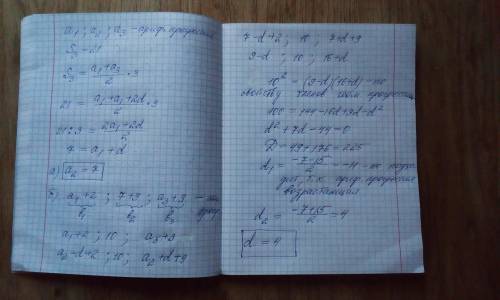 a₁; a₂; a₃ - ариф. прогрессия
S₃ = 21
S₃ = (a₁ + a₃)/2 · 3
21 = (a₁ + a₁ + 2d)/2 · 3
21 : 3 = (2a₁ + 2d)/2
7 = a₁ + d
а) a₂ = 7
a₁ + 2 ; 7 + 3 ; a₃ + 9 -
b₁ b₂ b₃
a₁ + 2 ; 10 ; a₃ + 9
a₂ - d + 2 ; 10 ; a₂ + d + 9
7 - d + 2 ; 10 ; 7 + d + 9
9 - d ; 10 ; 16 + d
10² = (9 - d)(16 + d) - по
свойству членов геом прогрессии
100 = 144 - 16d + 9d - d²
d² + 7d - 44 = 0
D = 49 + 176 = 225
d₁ = (-7 - 15)/2 = -11 - не подхо
дит, т.к. ариф. прогрессия
возрастающая
d₂ = (-7 + 15)/2 = 4
d = 4